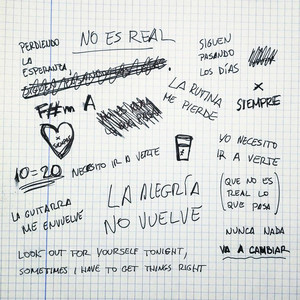 NO ES REAL
PERDIENDO
LA
ESPERANZA,
F#m A
x
SIEMPRE
10=20
NECESITO IR A VERTE
LA GUITARRA
ME ENVUELVE
LA RUTINA
ME PIERDE
LA ALEGRÍA
NO VUELVE
SIGUEN
PASANDO
LOS DÍAS
x
SIEMPRE
YO NECESITO
IR A VERTE
(QUE NO ES
REAL LO
QUE PASA)
NUNCA NADA
VA A CAMBIAR
LOOK OUT FOR YOURSELF TONIGHT,
SOMETIMES I HAVE TO GET THINGS RIGHT